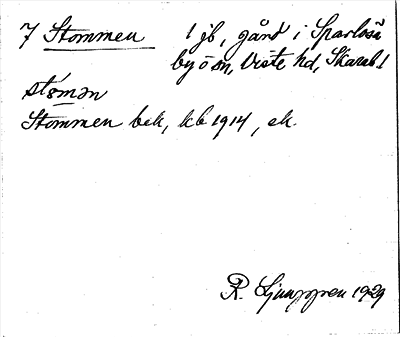 7 Stommen 1 jb, gård i Sparlösa
by o sn, Viste hd, Skarab. l
stómən
Stommen bek, kb 1914, ek.
R. Ljunggren 1929